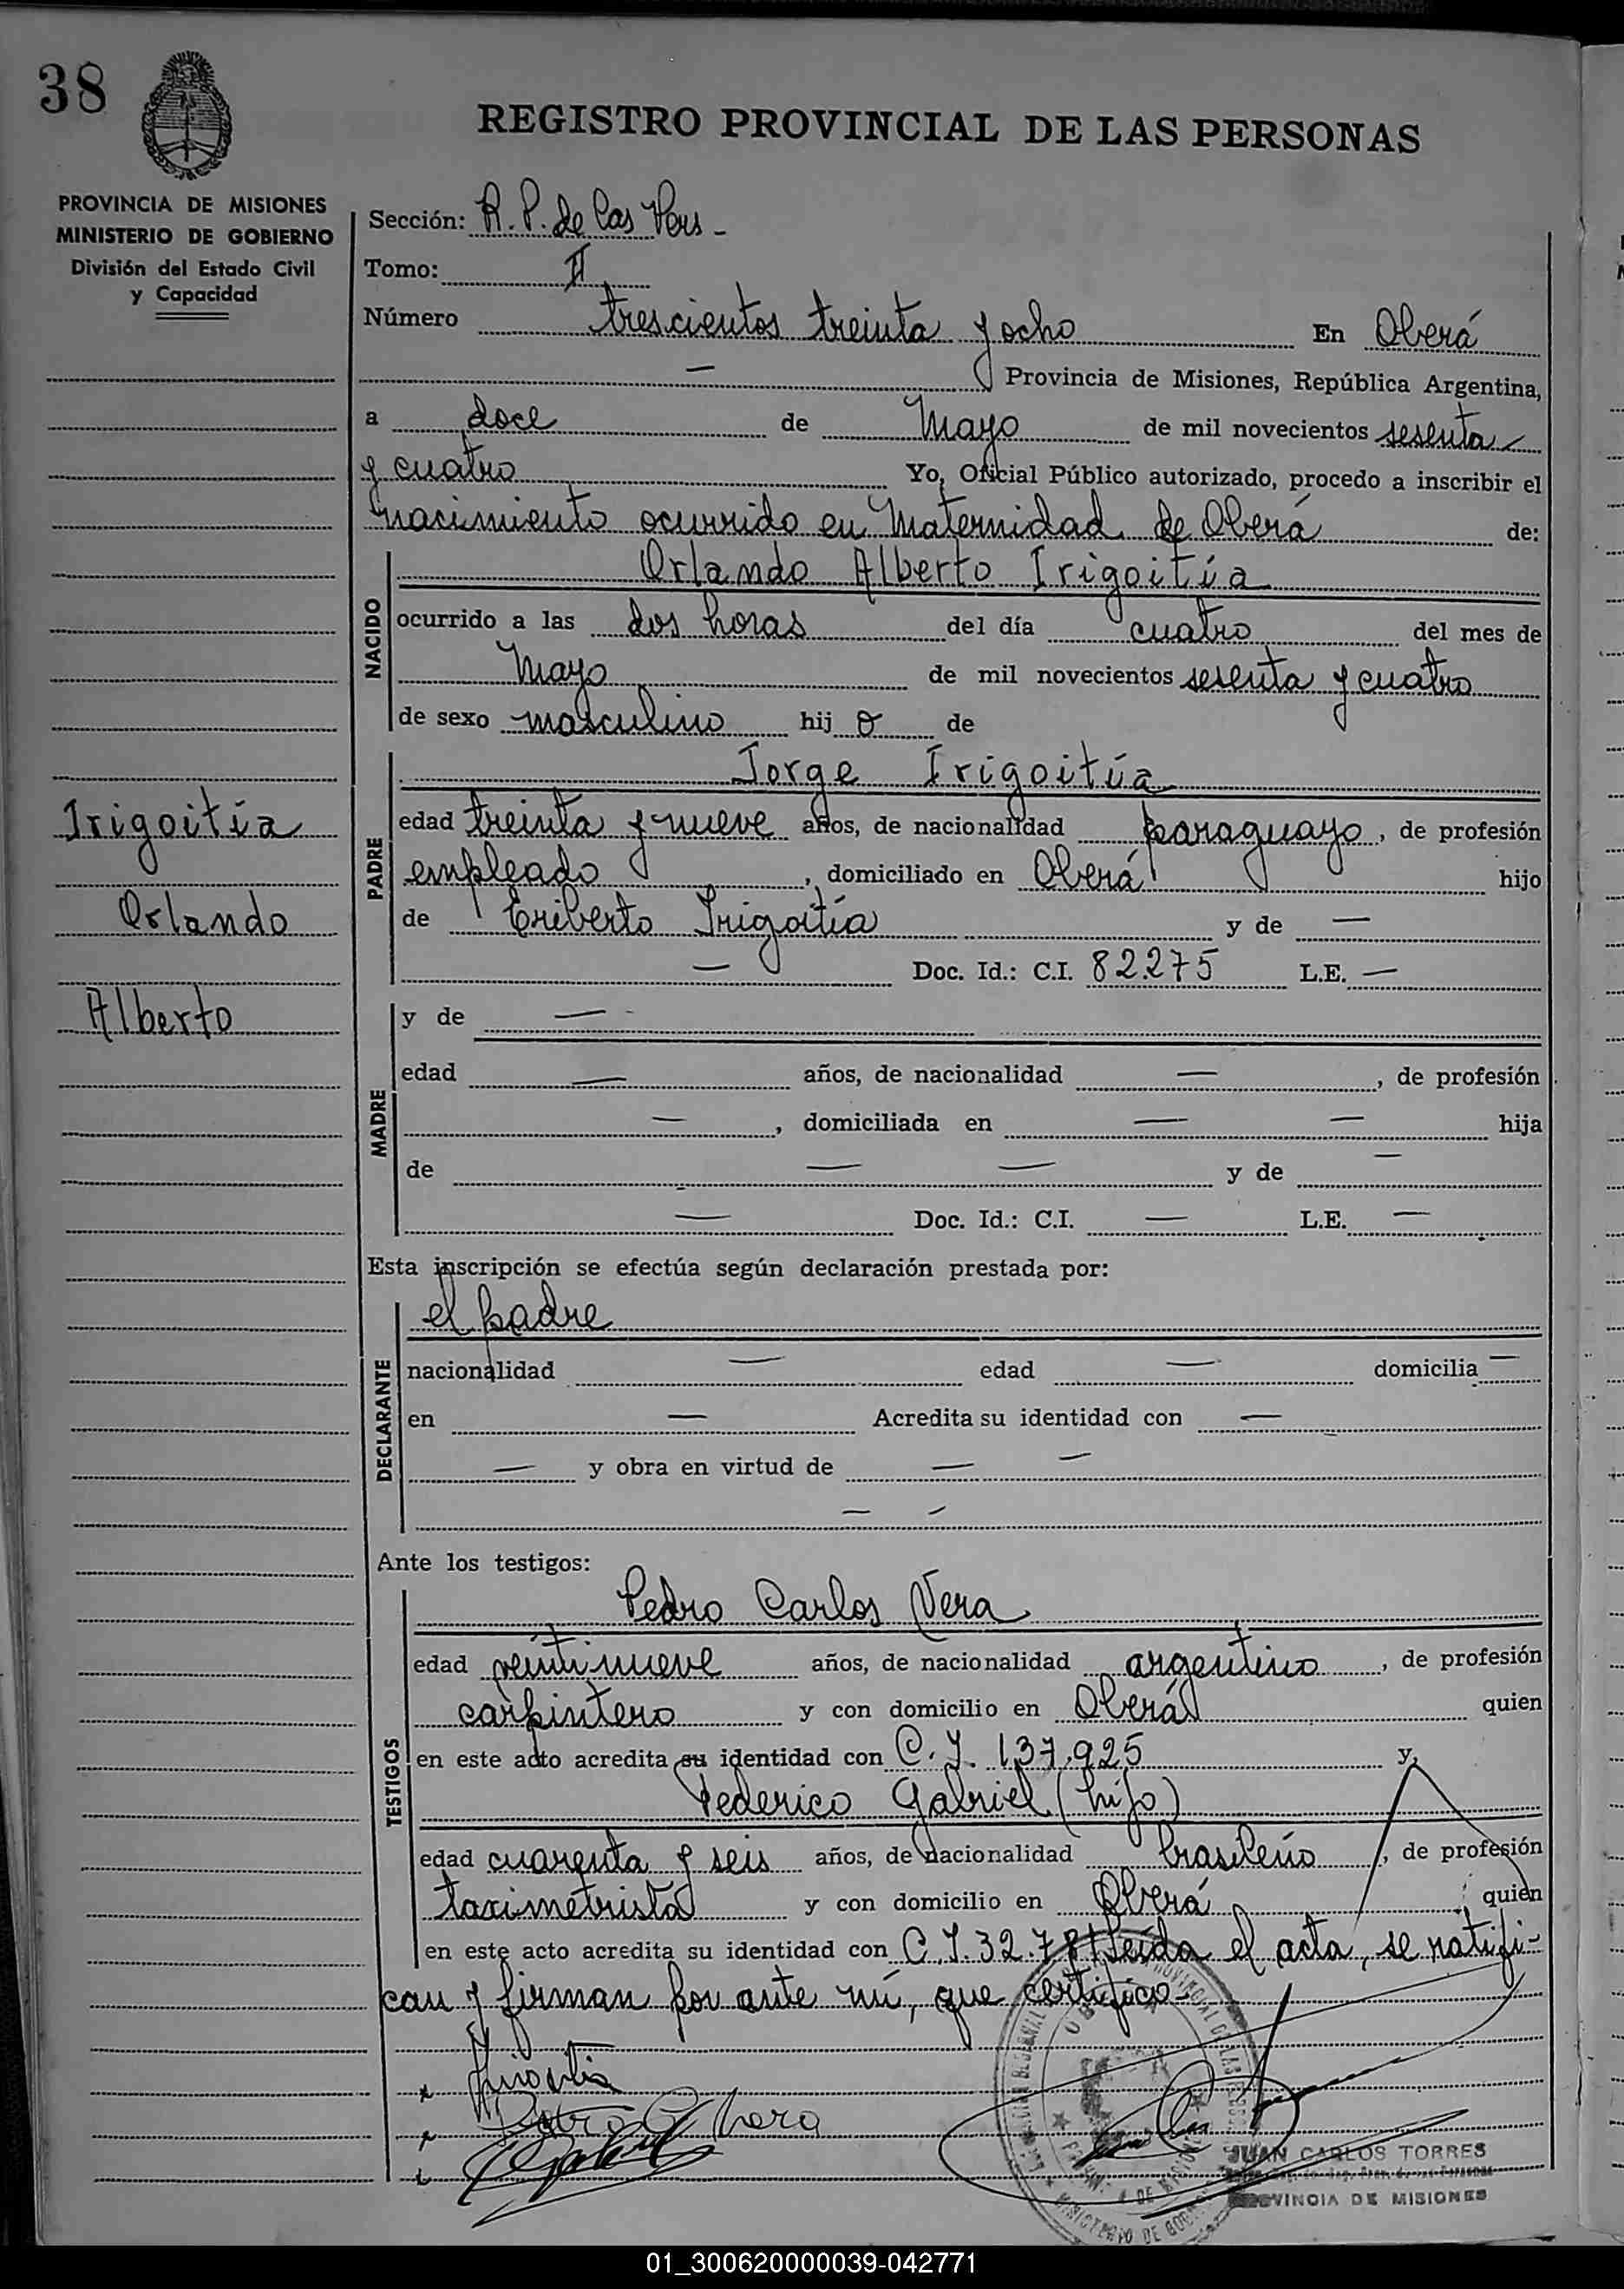 38
REGISTRO PROVINCIAL DE LAS PERSONAS
PROVINCIA DE MISIONES
MINISTERIO DE GOBIERNO
División del Estado Civil
y Capacidad
Sección: R. P. de las Pers -
Tomo: II
Número trescientos treinta y ocho En Oberá
— Provincia de Misiones, República Argentina,
a doce de Mayo de mil novecientos sesenta
y cuatro Yo, Oficial Público autorizado, procedo a inscribir el
nacimiento ocurrido en Maternidad de Oberá de:
NACIDO
Orlando Alberto Irigoitía
ocurrido a las dos horas del día cuatro del mes de
Mayo de mil novecientos sesenta y cuatro
de sexo masculino hij o de
Irigoitía
Orlando
Alberto
PADRE
Jorge Irigoitía
edad treinta y nueve años, de nacionalidad paraguayo, de profesión
empleado, domiciliado en Oberá hijo
de Eriberto Irigoitía y de —
— Doc. Id.: C.I. 82.275 L.E. —
MADRE
y de —
edad — años, de nacionalidad —, de profesión
—, domiciliada en — — hija
de — — y de —
— Doc. Id.: C.I. — L.E. —
Esta inscripción se efectúa según declaración prestada por:
DECLARANTE
el padre
nacionalidad — edad — domicilia —
en — Acredita su identidad con —
— y obra en virtud de — —
— —
Ante los testigos:
TESTIGOS
Pedro Carlos Vera
edad veintinueve años, de nacionalidad argentino, de profesión
carpintero y con domicilio en Oberá quien
en este acto acredita su identidad con C. I. 137.925 y
Federico Gabriel (hijo)
edad cuarenta y seis años, de nacionalidad brasileño, de profesión
taximetrista y con domicilio en Oberá quien
en este acto acredita su identidad con C.I. 32.781 Leída el acta, se ratifi-
can y firman por ante mí, que certifico-
Irigoitia
Pedro C Vera
JUAN CARLOS TORRES
PROVINCIA DE MISIONES
01_300620000039-042771